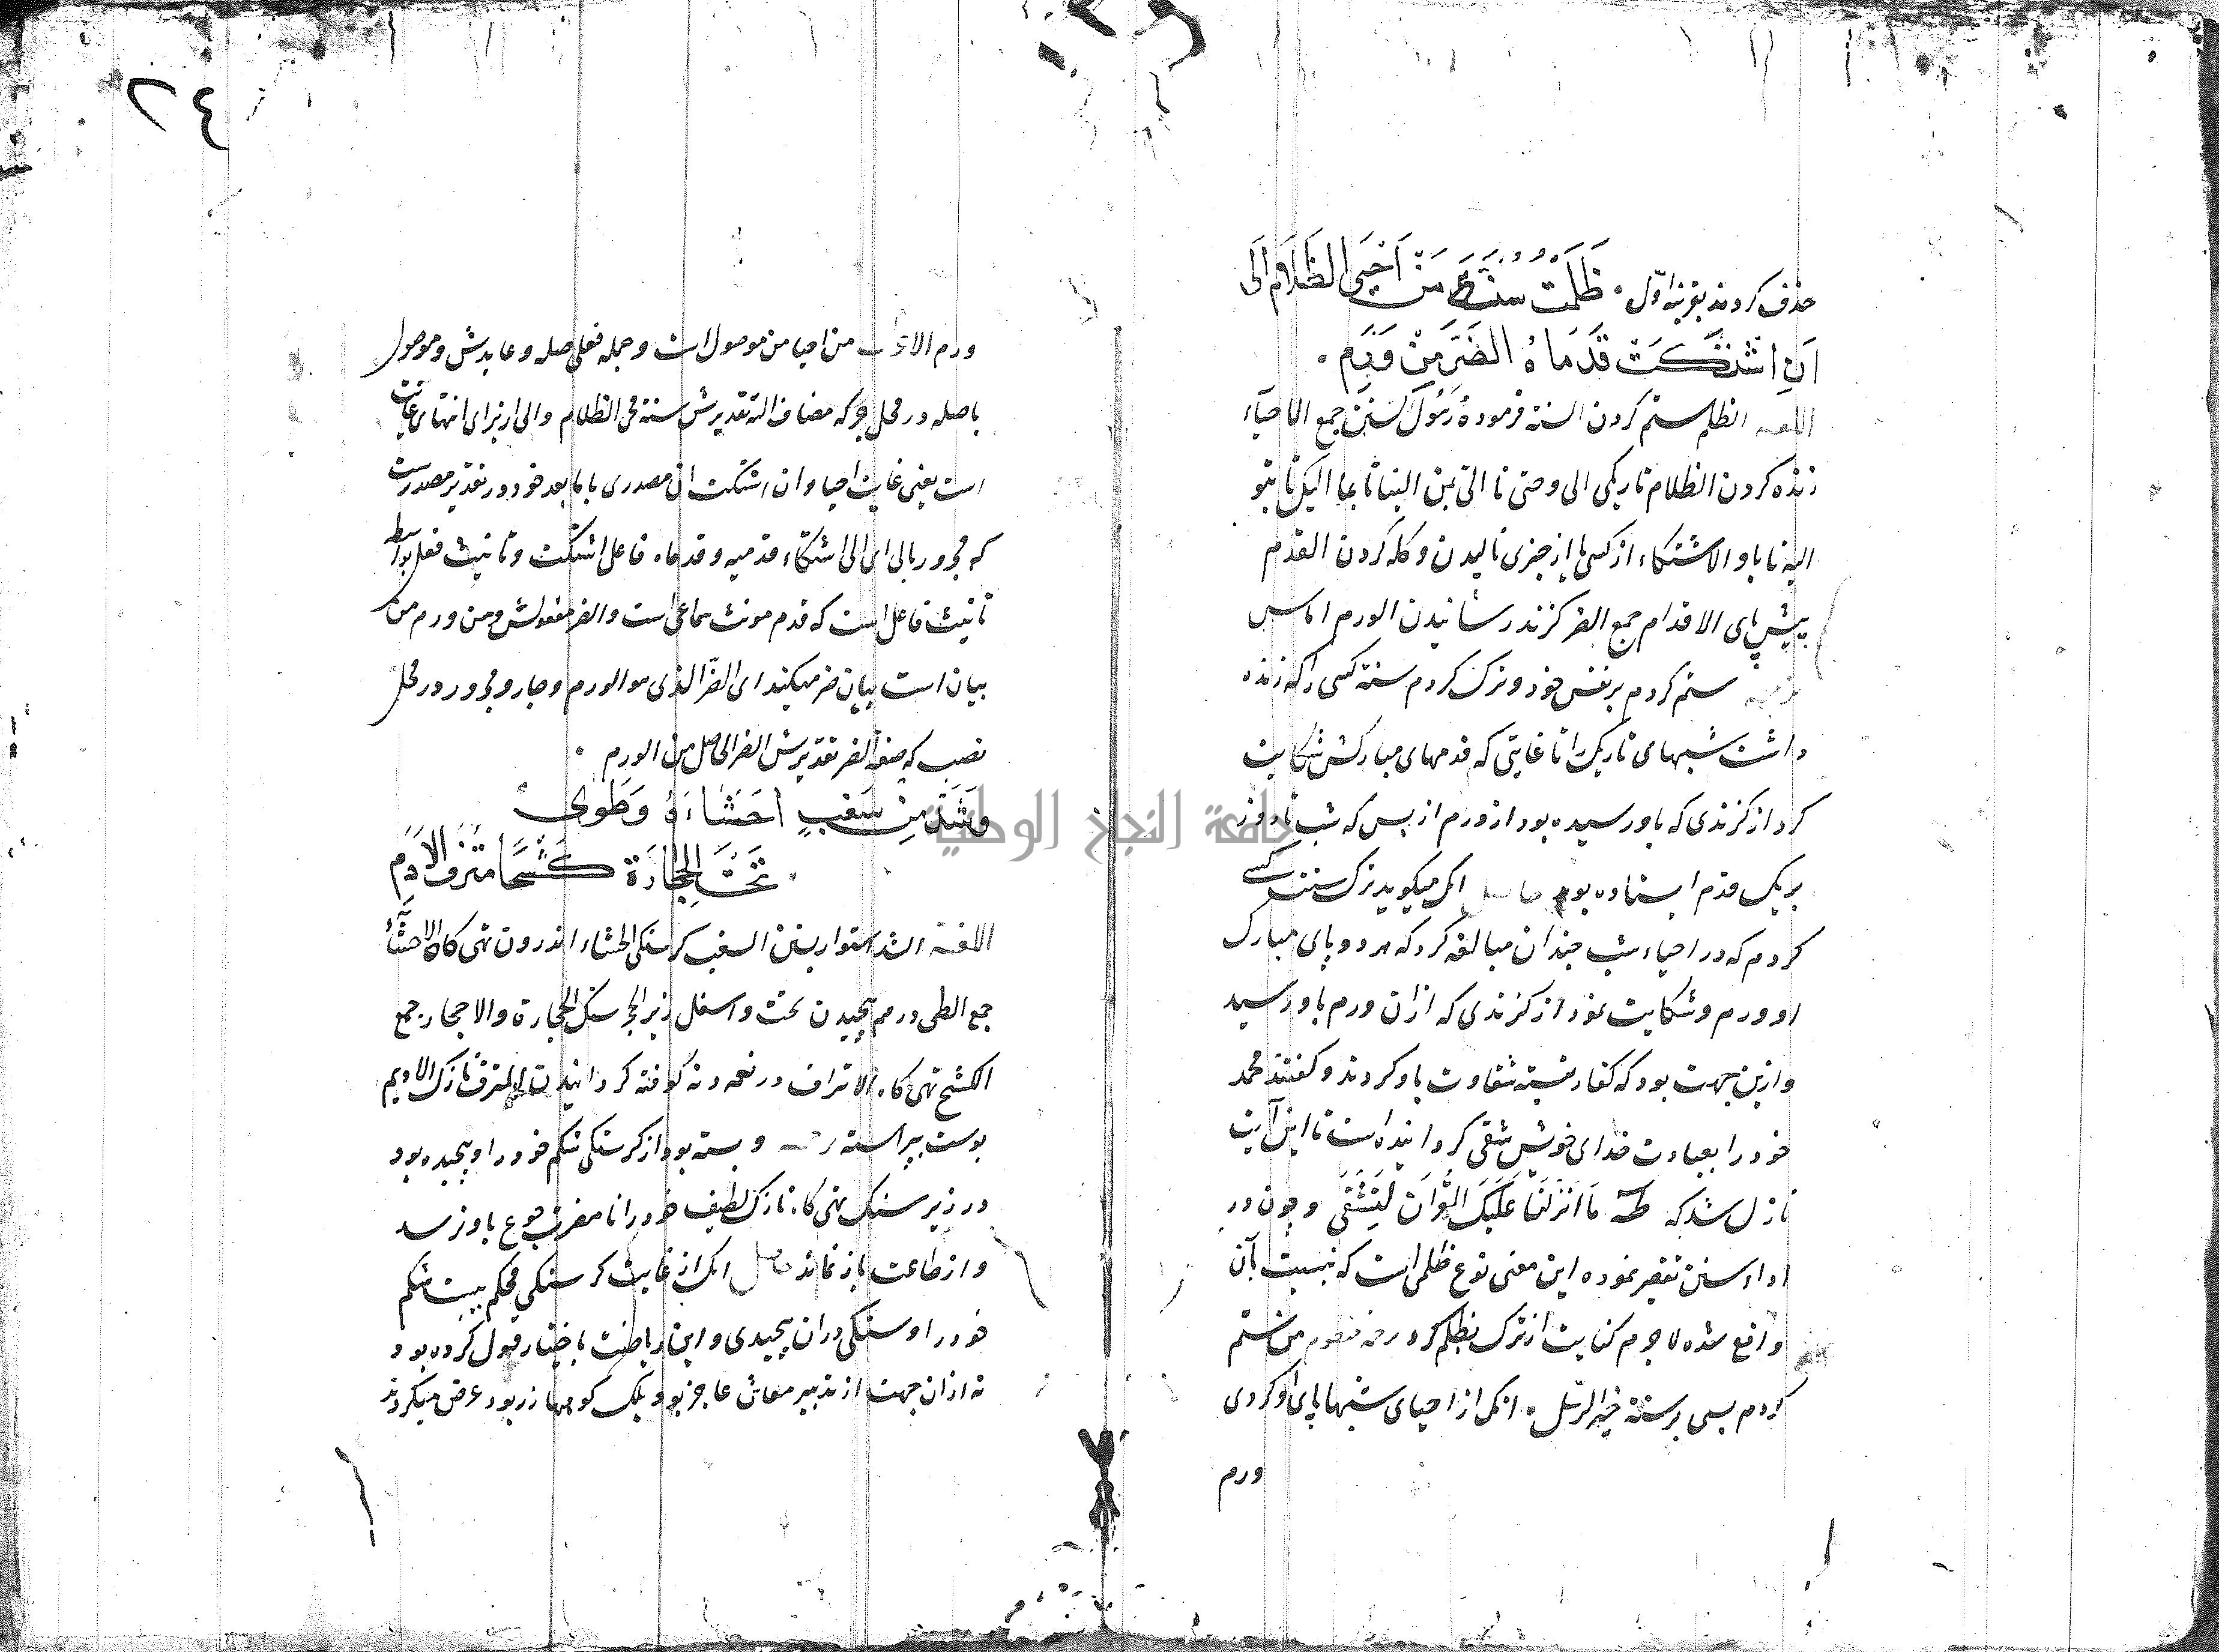 حذف کردند بقرینه اول ۰ ظَلَمْتُ سُنَّةَ مَنْ اَحْیَی الظَّلَامَ اِلَی
اَنِ اشْتَکَتْ قَدَمَاهُ الضُّرَّ مِنْ وَرَمٍ ۰
اللغه الظلم ستم کردن السنه فرمودهٔ رسول السنن جمع الاحیاء
زنده کردن الظلام تاریکی الی و حتی تا الی بمن الینا تا بما الیک تا بتو
الیه تا باو الاشتکاء از کسی یا از چیزی نالیدن و کله کردن القدم
پیش پای الاقدام جمع الضر کزند رسانیدن الورم اماس
ترجمه ستم کردم بر نفس خود و ترک کردم سنه کسی را که زنده
داشت شبهای تاریک را تا غایتی که قدمهای مبارکش شکایت
کرد از کزندی که باو رسیده بود از ورم از بس که شب تا روز
بر یک قدم ایستاده بود حاصل انک میکوید ترک سنت کسی
کردم که در احیاء شب چندان مبالغه کرد که هر دو پای مبارک
او ورم و شکایت نمود از کزندی که ازان ورم باو رسید
و ازین جهت بود که کفار نسبته شقاوت باو کردند و کفتند محمد
خود را بعبادت خدای خویش شقی کردانیده است تا این آیت
نازل شد که طه مَا اَنْزَلْنَا عَلَیْكَ الْقُرْاٰنَ لِتَشْقٰی و چون در
اداء سنن تقصیر نموده این معنی نوع ظلمی است که نسبت بآن
واقع شده لاجرم کنایت از ترک بظلم کرد رحه منظوم من ستم
کردم بسی بر سنته خیر الرسل ۰ انک از احیای شبها پای او کردی
ورم
٢٤
ورم الاعراب من احیا من موصول است و جمله فعلی صله و عایدش و موصول
باصله در محل جر که مضاف الیه تقدیرش سنة محی الظلام و الی از برای انتهای غایت
است یعنی غایت احیا و ان اشتکت ان مصدری با ما بعد خود در تقدیر مصدرست
که مجرور بالی ای الی اشتکاء قدمیه و قدماه فاعل اشتکت و تانیث فعل بواسطه
تانیث فاعل است که قدم مونث سماعی است و الضر مفعولش و من ورم من
بیان است بیان ضر میکند ای الضر الذی هو الورم و جار و مجرور در محل
نصب که صفة الضر تقدیرش الضر الحاصل من الورم ۰
وَشَدَّ مِنْ سَغَبٍ اَحْشَاءَهُ وَطَوٰی
۰ تَحْتَ الْحِجَارَةِ کَشْحًا مُتْرَفَ الْاَدَمِ
اللغه الشد استوار بستن السغب کرسنکی الحشاء اندرون تهی کاه الاحشاء
جمع الطی درهم پیچیدن تحت و اسفل زیر الحجر سنک الحجارة و الاحجار جمع
الکشح تهی کاه الاتراف در نعمه و نه کوفته کردانیدن المترف نازک الادیم
پوست پیراسته ترجمه و بسته بود از کرسنکی شکم خود را و پیچیده بود
در زیر سنک تهی کاه نازک لطیف خود را تا مضرت جوع باو نرسد
و از طاعت باز نماند حاصل انک از غایت کرسنکی محکم ببست شکم
خود را و سنکی دران پیچیدی و این ریاضت باختیار قبول کرده بود
نه ازان جهت از تدبیر معاش عاجز بود بلک کوهها زر بود عرض میکردند
جامعة النجاح الوطنية